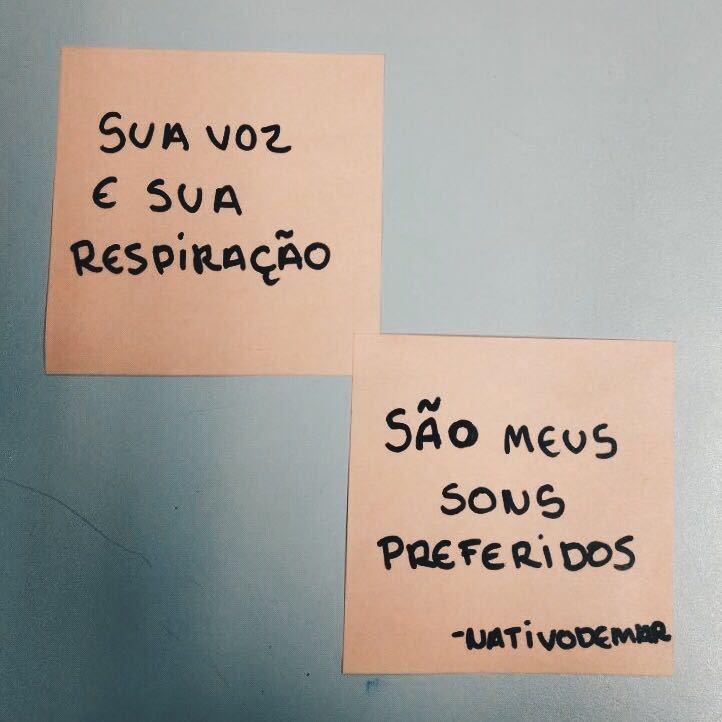 SUA VOZ
E SUA
RESPIRAÇÃO
SÃO MEUS
SONS
PREFERIDOS
-NATIVODEMAR